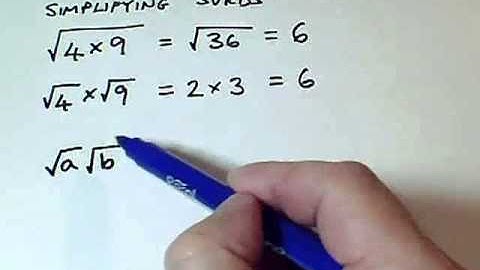 SIMPLIFYING SURDS
√4 × 9 = √36 = 6
√4 × √9 = 2 × 3 = 6
√a √b